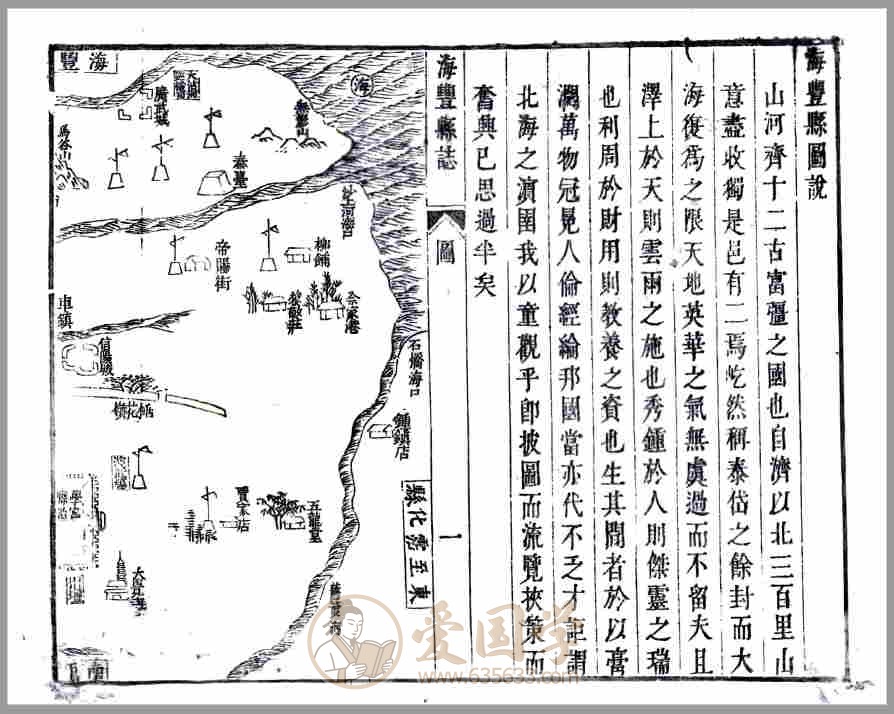 海豐縣圖說
山河齊十二古富彊之國也自濟以北三百里山
意盡收獨是邑有二焉屹然稱泰岱之餘封而大
海復為之限天地英華之氣無虞過而不留夫且
澤上於天則雲雨之施也秀鍾於人則傑靈之瑞
也利周於財用則教養之資也生其間者於以膏
潤萬物冠冕人倫經綸邦國當亦代不乏才詎謂
北海之濵固我以童觀乎卽披圖而流覽挾策而
奮興已思過半矣
海豐縣誌
圖
一
海豐
海
無影山
秦臺
馬谷山
帝陽街
柳鋪
佘家港
車鎮
信陽城
石𥕢海口
鋪鎮店
東至霑化縣
學宮
賈家店
五龍堂
爱国学
www.635633.com